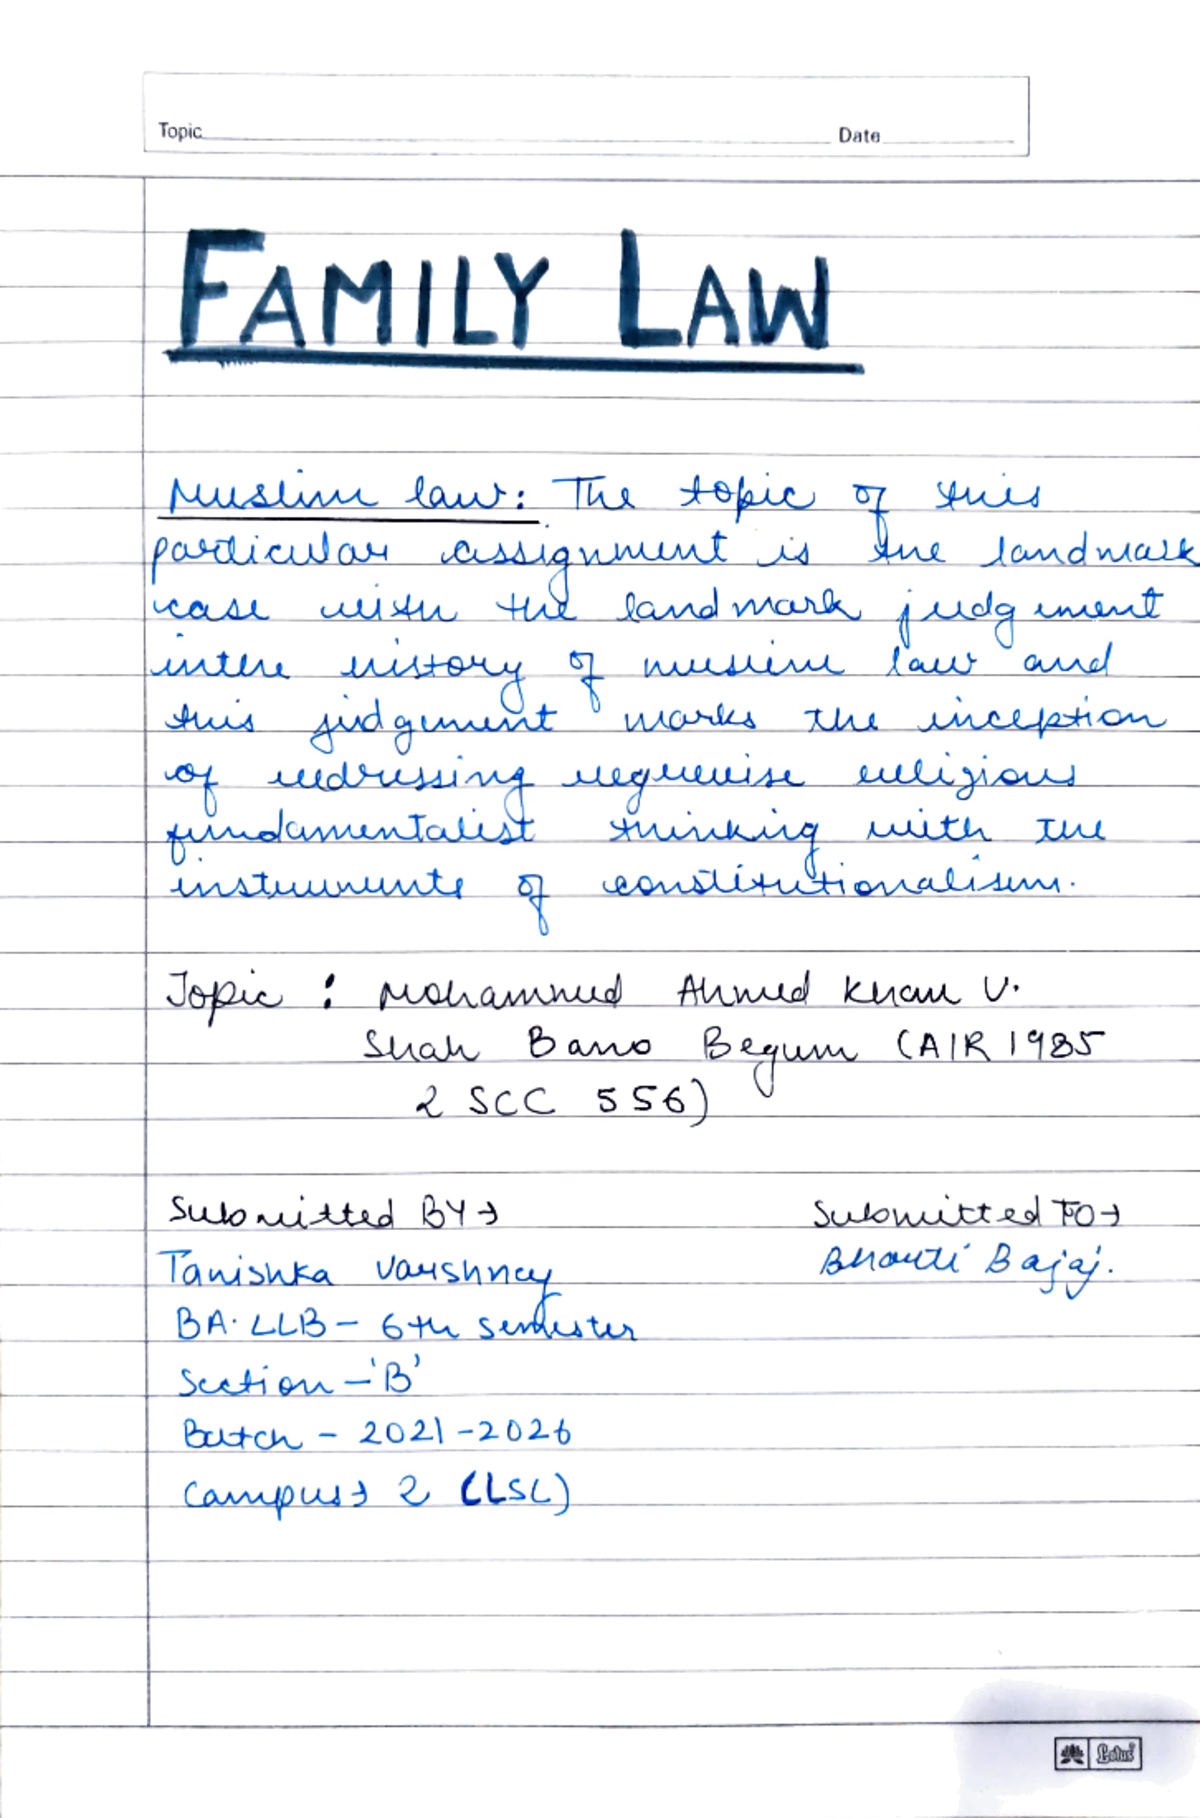 Topic Date
FAMILY LAW
Muslim law: The topic of this
particular assignment is the landmark
case with the landmark judgment
in the history of muslim law and
this judgement marks the inception
of redressing religious
fundamentalist thinking with the
instruments of constitutionalism.
Topic : Mohammed Ahmed Khan V.
Shah Bano Begum (AIR 1985
2 SCC 556)
Submitted BY→ Submitted TO→
Tanishka Varshney Bharti Bajaj.
BA.LLB - 6th semester
Section - 'B'
Batch - 2021-2026
Campus→ 2 (LSL)
Lotus